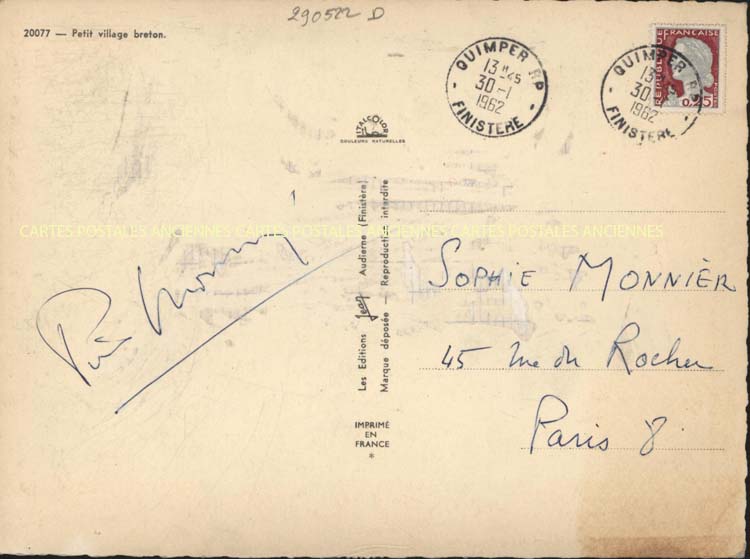 290522 D
20077 — Petit village breton.
QUIMPER RP
13 H 45
30 -1
1962
FINISTERE
QUIMPER RP
13
30
1962
FINISTERE
REPUBLIQUE FRANÇAISE
0,25
ITALCOLOR
COULEURS NATURELLES
CARTES POSTALES ANCIENNES CARTES POSTALES ANCIENNES CARTES POSTALES ANCIENNES
Les Editions Jean Audierne (Finistère)
Marque déposée — Reproduction interdite
IMPRIMÉ
EN
FRANCE
*
SOPHIE MONNIER
45 rue du Rocher
Paris 8.